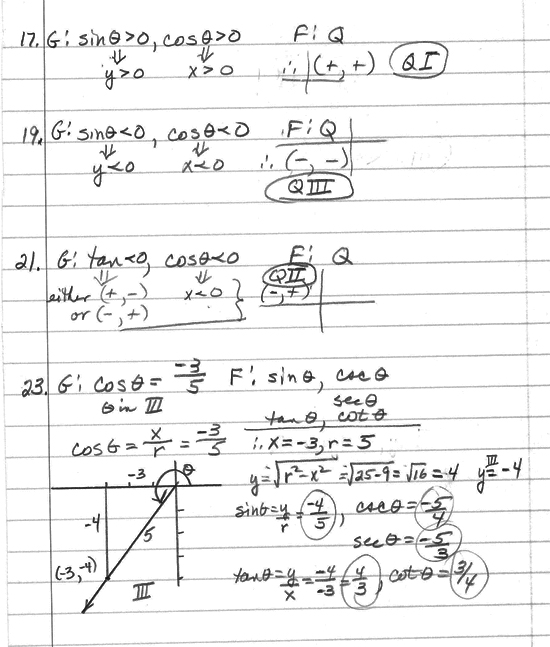 17. G: sinθ>0, cosθ>0 F: Q
⇓ ⇓
y>0 x>0 ∴ (+, +) QI
19. G: sinθ<0, cosθ<0 F: Q
⇓ ⇓
y<0 x<0 ∴ (-, -)
QIII
21. G: tan<0, cosθ<0 F: Q
⇓ ⇓ QII
either (+,-) x<0 } (-,+)
or (-,+)
23. G: cosθ = -3/5 F: sinθ, cscθ
θ in III secθ
tanθ, cotθ
cosθ = x/r = -3/5 ∴ x=-3, r=5
y = √r²-x² = √25-9 = √16 = 4 y III = -4
-3 θ
sinθ = y/r = -4/5, cscθ = -5/4
-4 5
secθ = -5/3
(-3,-4)
III
tanθ = y/x = -4/-3 = 4/3, cotθ = 3/4